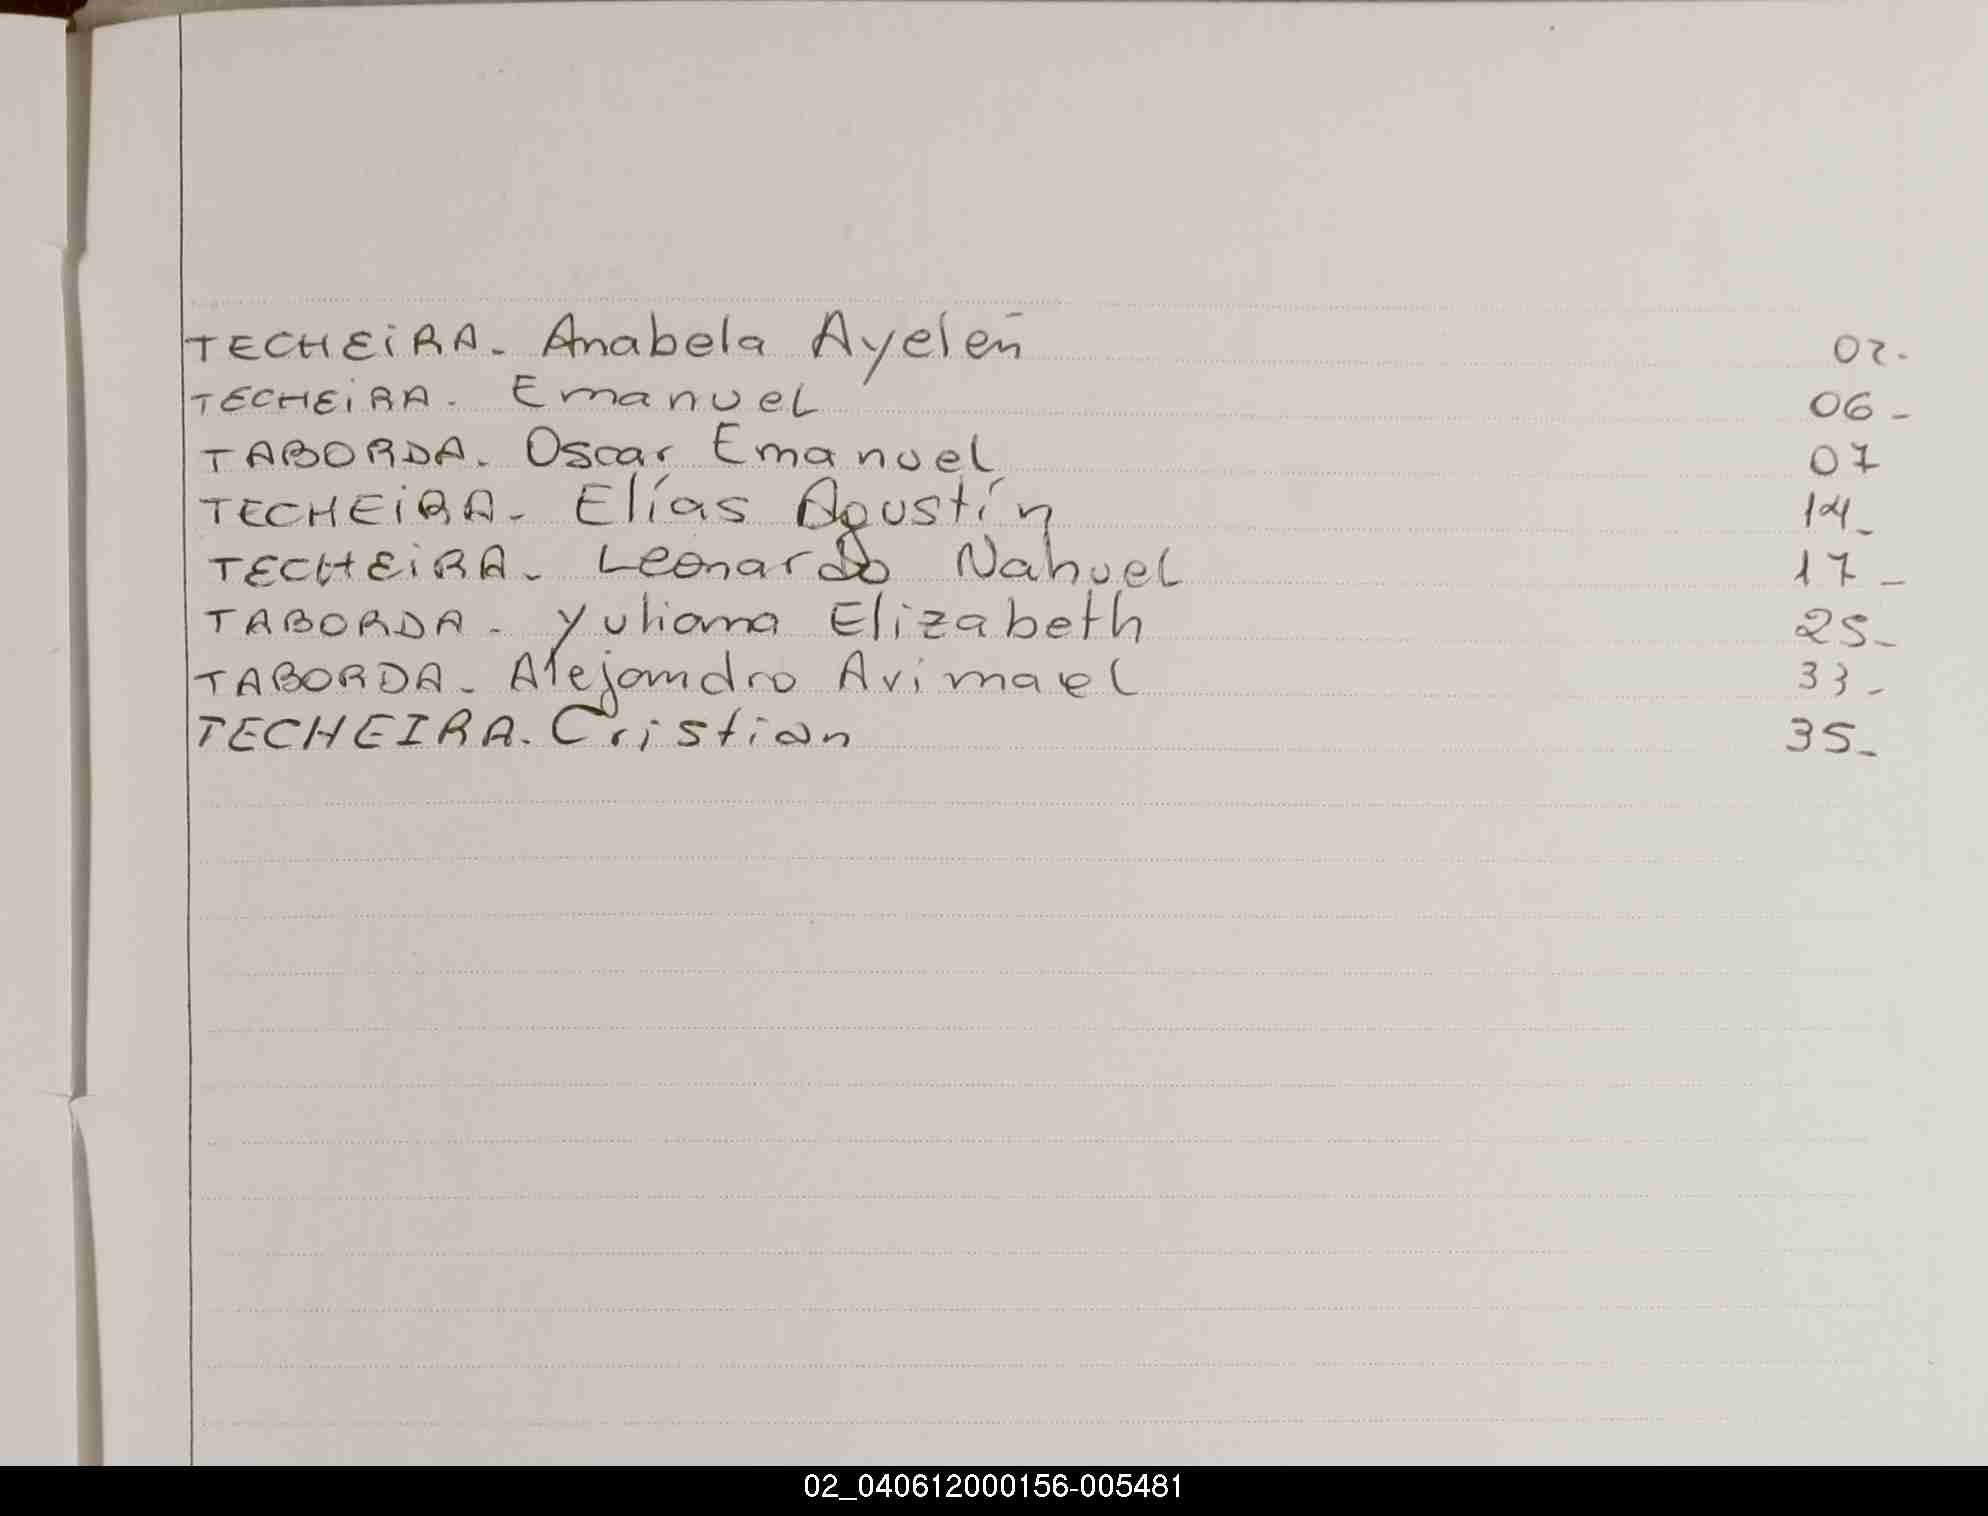 TECHEiRA. Anabela Ayelén 02.
TECHEiRA. Emanuel 06-
TABORDA. Oscar Emanuel 07
TECHEiRA. Elías Agustín 14-
TECHEiRA. Leonardo Nahuel 17-
TABORDA. Yuliana Elizabeth 25-
TABORDA. Alejandro Avimael 33-
TECHEIRA. Cristian 35-
02_040612000156-005481